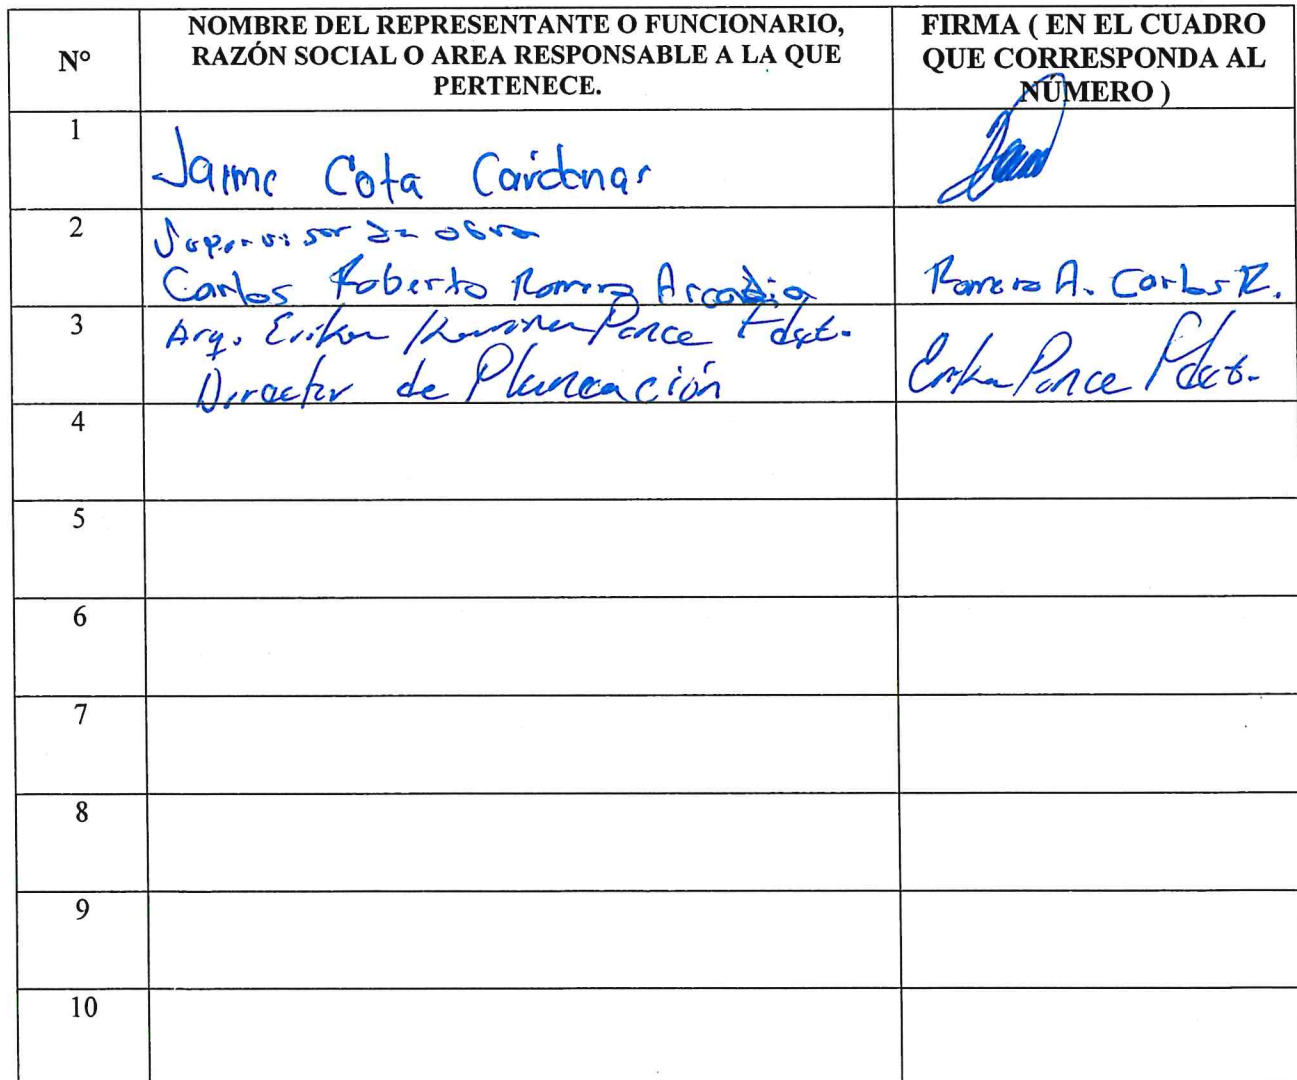 N°
NOMBRE DEL REPRESENTANTE O FUNCIONARIO,
RAZÓN SOCIAL O AREA RESPONSABLE A LA QUE
PERTENECE.
FIRMA ( EN EL CUADRO
QUE CORRESPONDA AL
NÚMERO )
1
Jaime Cota Cardenas
2
Supervisor de obra
Carlos Roberto Romero Arcadia
Romero A. Carlos R.
3
Arq. Erika Ponce
Director de Planeación
Erika Ponce
4
5
6
7
8
9
10